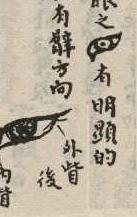 眼之 有明顯的
有辭方向
外眥
後
內眥